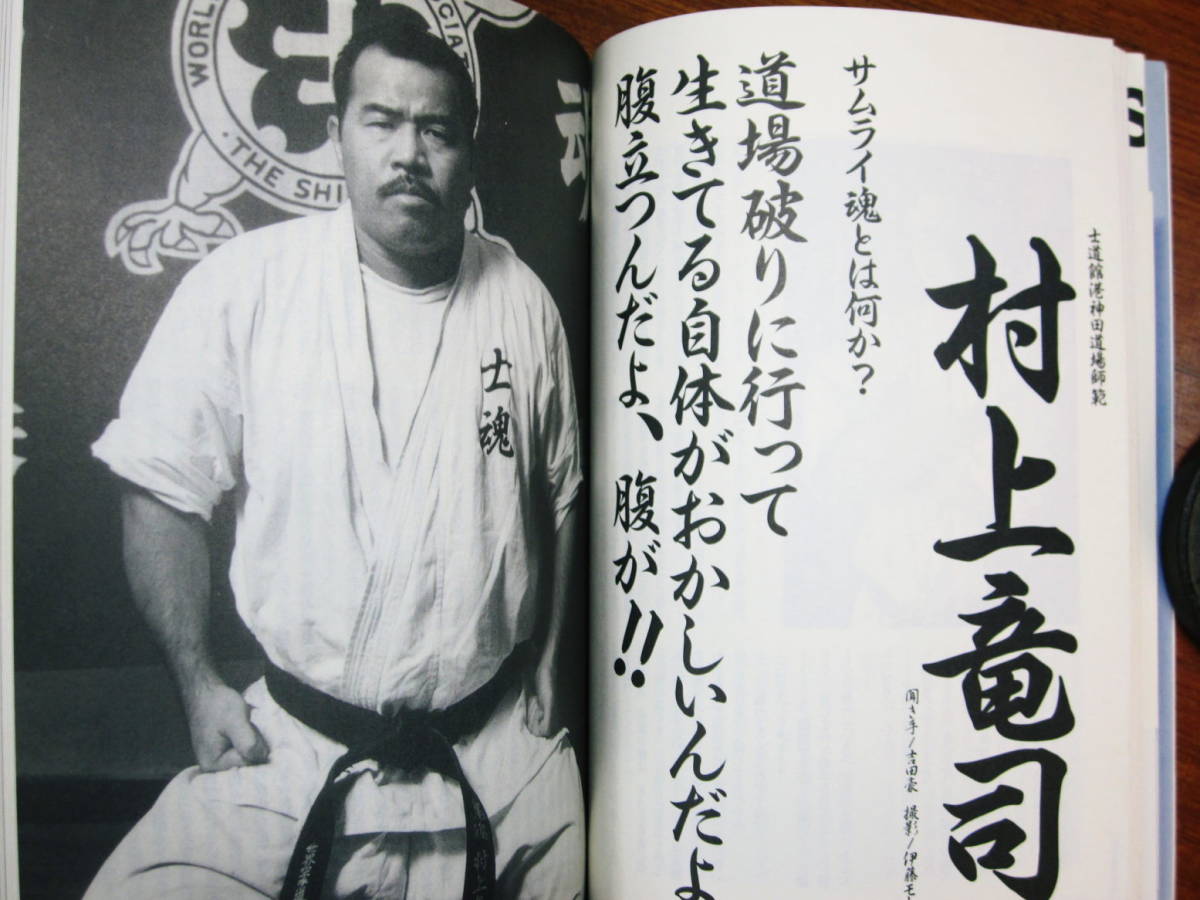 士道館港神田道場師範
村上竜司
聞き手/吉田豪 撮影/伊藤モ
サムライ魂とは何か?
道場破りに行って
生きてる自体がおかしいんだよ
腹立つんだよ、腹が!!
WORL
CIAT
・THE SHI
魂
士魂
S